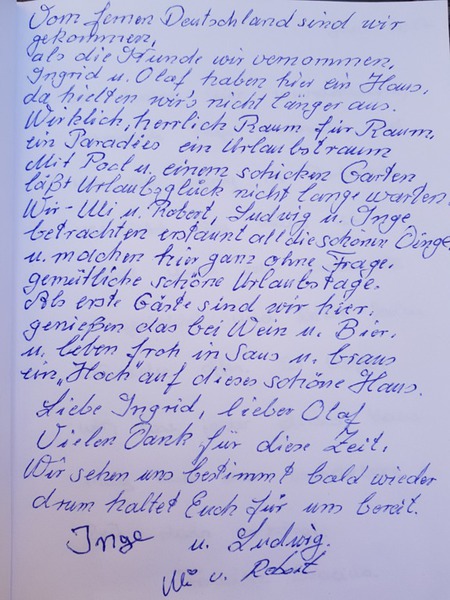 Vom fernen Deutschland sind wir
gekommen,
als die Kunde wir vernommen,
Ingrid u. Olaf haben hier ein Haus,
da hielten wir's nicht länger aus.
Wirklich, herrlich Raum für Raum,
ein Paradies ein Urlaubstraum
Mit Pool u. einem schicken Garten
läßt Urlaubsglück nicht lange warten.
Wir - Uli u. Robert, Ludwig u. Inge
betrachten erstaunt all die schönen Dinge
u. machen hier ganz ohne Frage.
gemütliche schöne Urlaubstage.
Als erste Gäste sind wir hier,
genießen das bei Wein u. Bier.
u. leben froh in Saus u. braus
ein „Hoch" auf dieses schöne Haus.
Liebe Ingrid, lieber Olaf
Vielen Dank für diese Zeit.
Wir sehen uns bestimmt bald wieder
drum haltet Euch für uns bereit.
Inge u. Ludwig.
Uli u. Robert